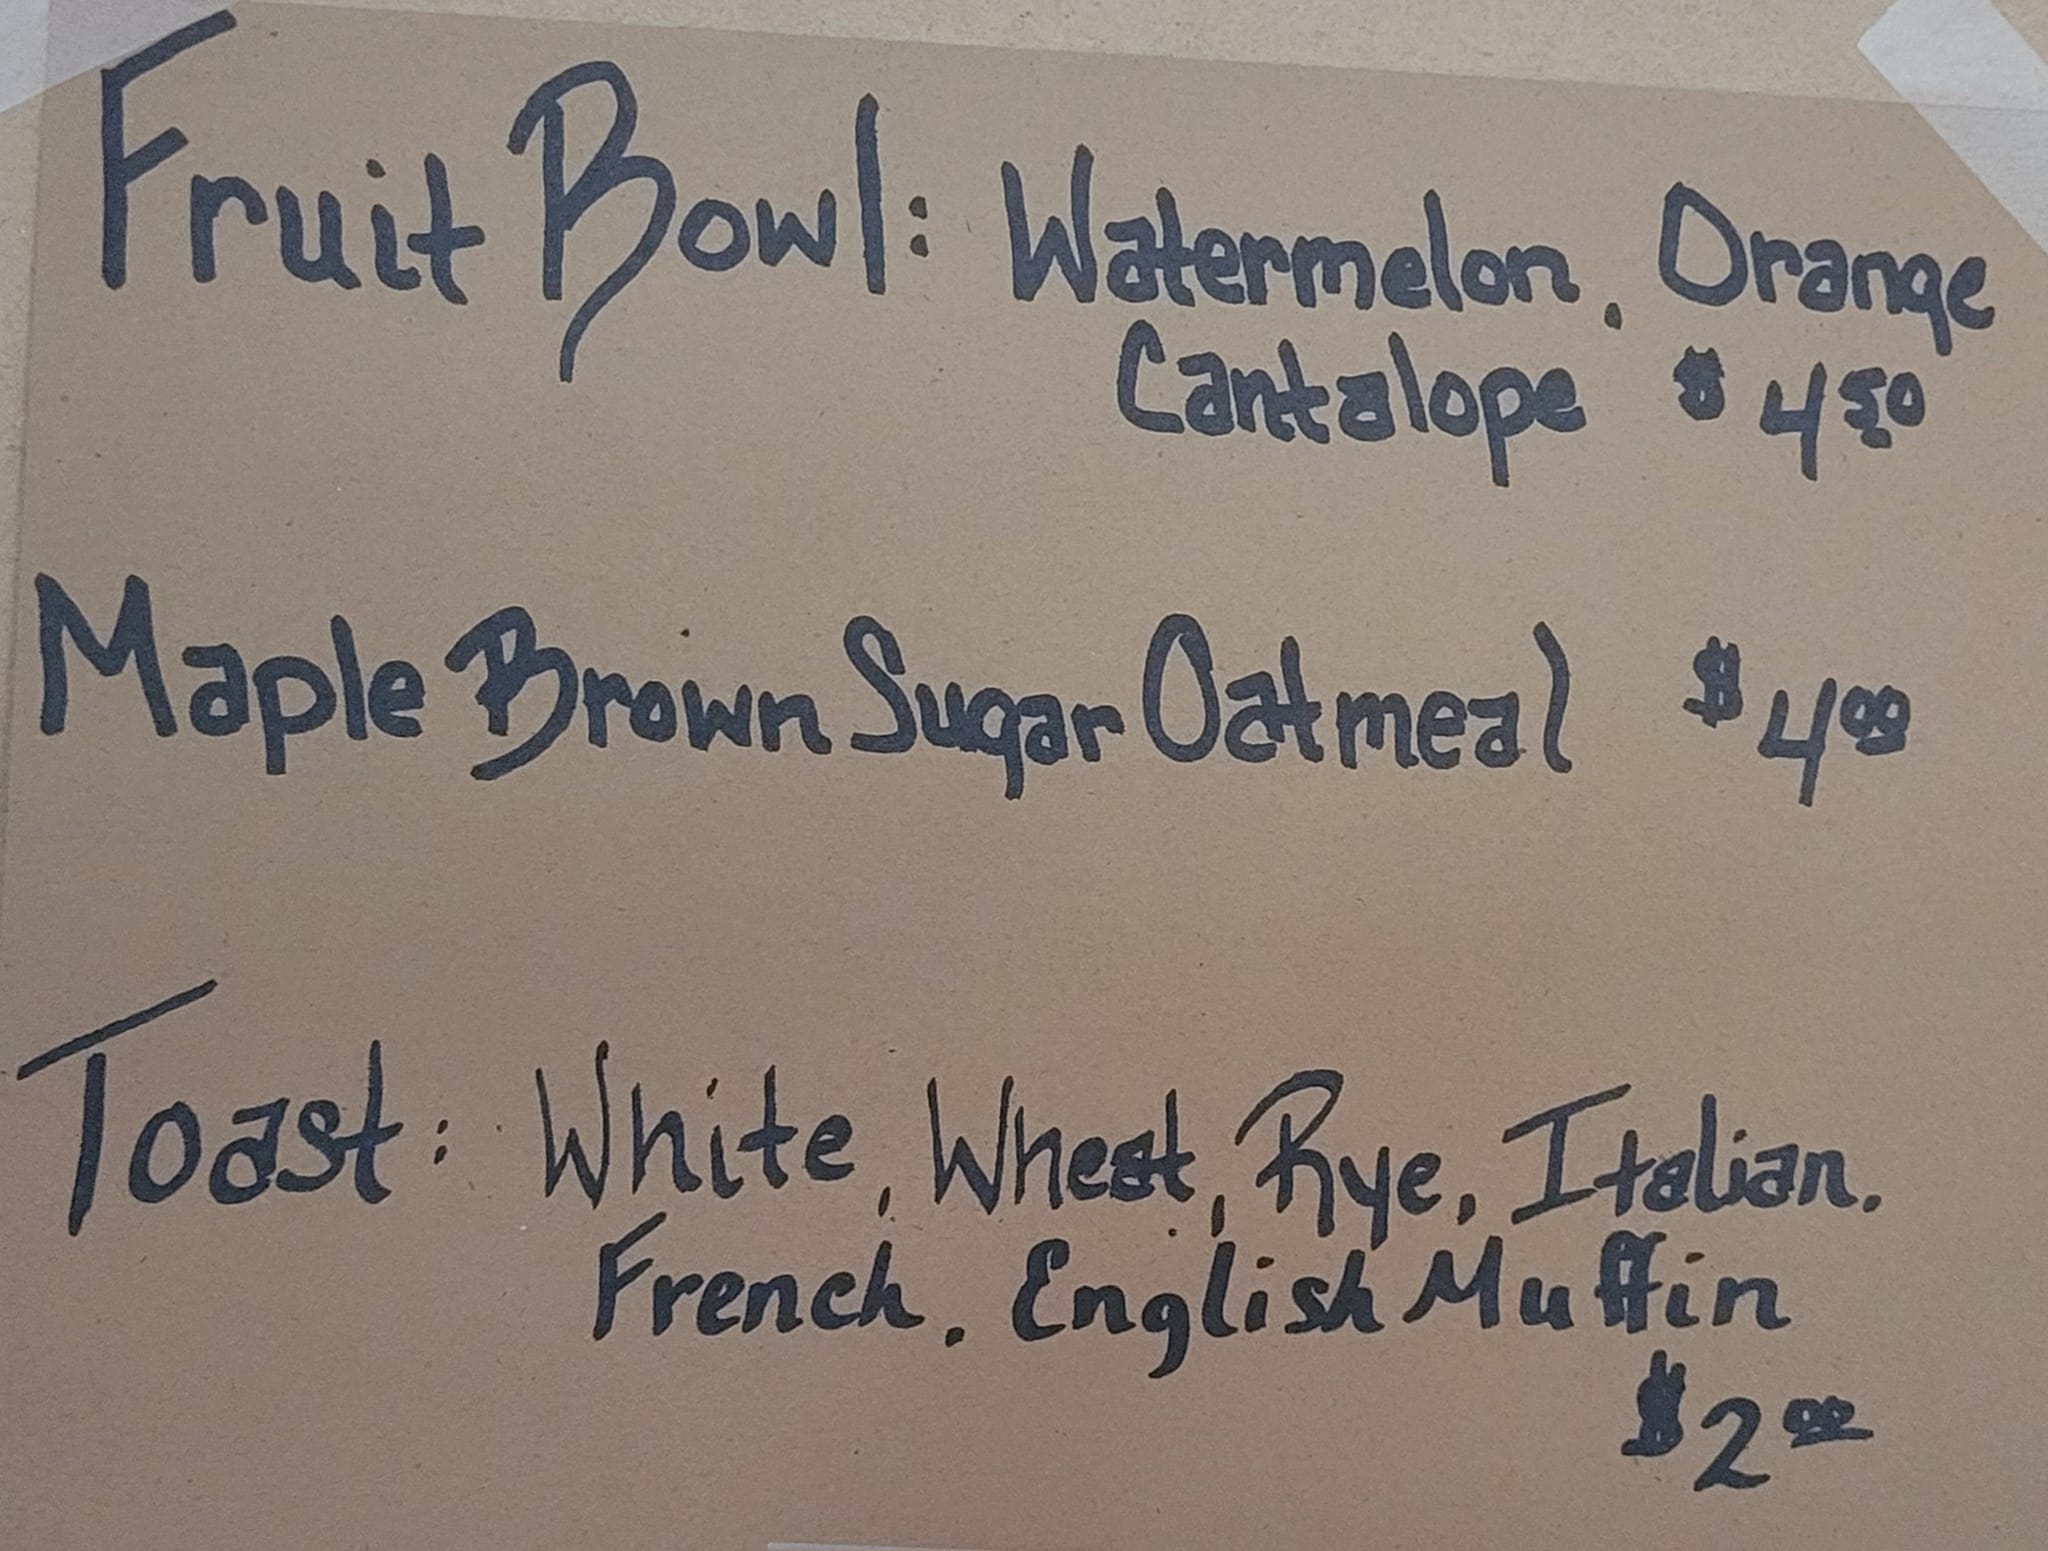 Fruit Bowl: Watermelon, Orange
Cantalope $4.50
Maple Brown Sugar Oatmeal $4.00
Toast: White, Wheat, Rye, Italian,
French, English Muffin
$2.00